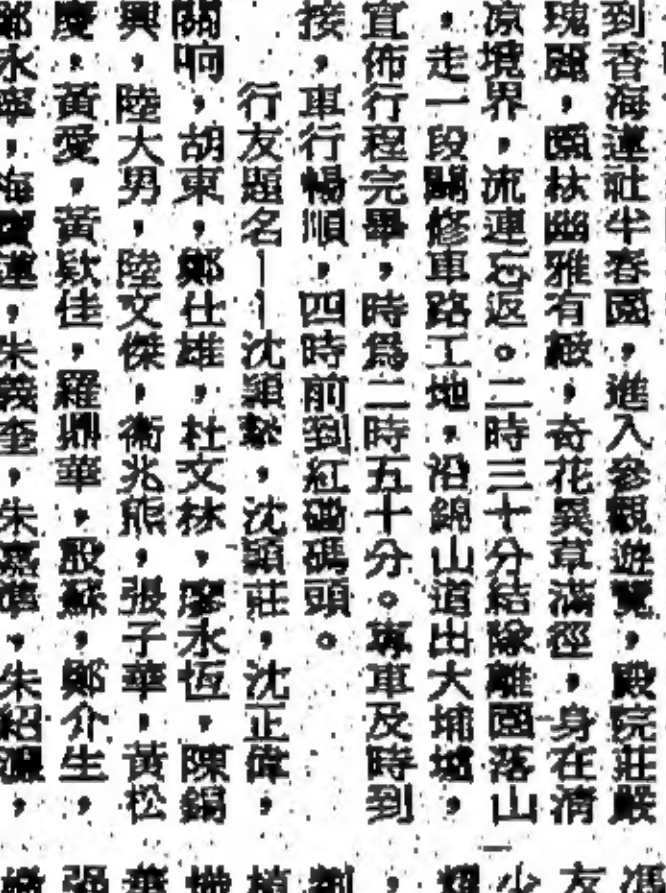 到香海蓮社半春園,進入參觀遊覽,殿院莊嚴
瑰麗,園林幽雅有緻,奇花異草滿徑,身在清
凉境界,流連忘返。二時三十分結隊離園落山
,走一段關修車路工地,沿錦山道出大埔墟,
宣佈行程完畢,時為二時五十分。專車及時到
接,車行暢順,四時前到紅磡碼頭。
行友題名——沈頴,沈頴莊,沈正偉,
關响,胡東,鄭仕雄,杜文林,廖永恆,陳錫
興,陸大男,陸文傑,衞兆熊,張子華,黃松
慶,黃愛,黃欵佳,羅鼎華,殷蘇,鄭介生,
永寧,海蓮,朱義奎,朱嘉,朱紹,